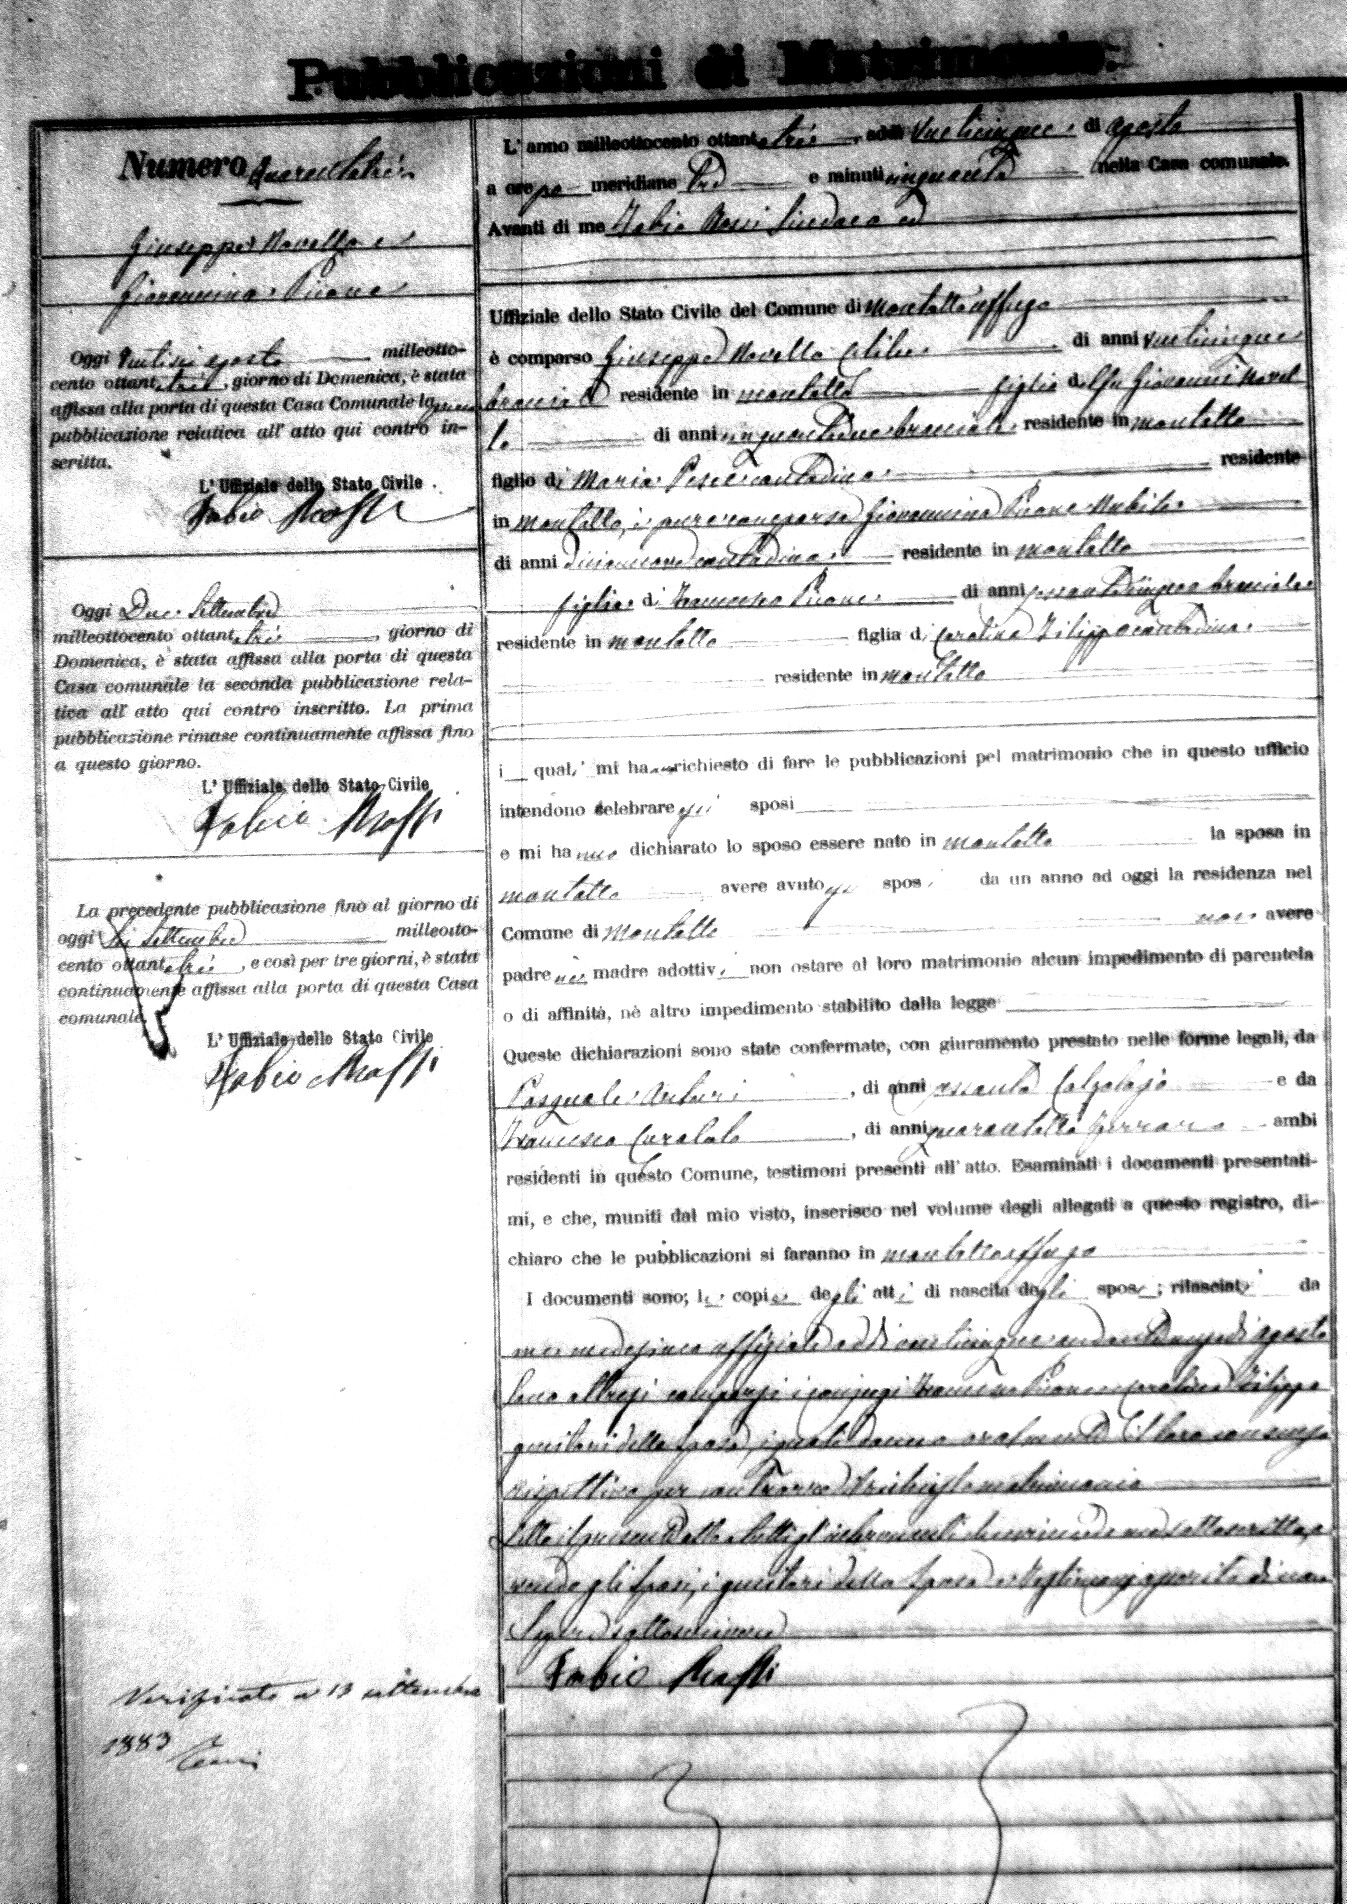 Pubblicazioni di Matrimonio.
Numero Quarantatrè
Giuseppe Novello e
Giovannina Picone
Oggi Ventisei agosto milleotto-
cento ottantatrè, giorno di Domenica, è stata
affissa alla porta di questa Casa Comunale la prima
pubblicazione relativa all' atto qui contro in-
scritta.
L' Uffiziale dello Stato Civile
Fabio Rossi
Oggi Due Settembre
milleottocento ottantatrè, giorno di
Domenica, è stata affissa alla porta di questa
Casa comunale la seconda pubblicazione rela-
tica all' atto qui contro inscritto. La prima
pubblicazione rimase continuamente affissa fino
a questo giorno.
L' Uffiziale dello Stato Civile
Fabio Rossi
La precedente pubblicazione fino al giorno di
oggi Sei Settembre milleotto-
cento ottantatrè, e così per tre giorni, è stata
continuamente affissa alla porta di questa Casa
comunale.
L' Uffiziale dello Stato Civile
Fabio Rossi
Verificato a 13 settembre
1883
L' anno milleottocento ottantatrè, addì Venticinque di agosto
a ore po meridiane tre e minuti cinquanta nella Casa comunale.
Avanti di me Fabio Rossi Sindaco ed
Uffiziale dello Stato Civile del Comune di Montalto uffugo
è comparso Giuseppe Novello Celibe di anni venticinque
bracciale residente in montalto figlio di fu Giovanni Novel
lo di anni bracciale residente in montalto
figlio di Maria Pesce contadina residente
in montalto, è pure comparsa Giovannina Picone Nubile
di anni diciannove contadina residente in montalto
figlia di Francesco Picone di anni sessantacinque bracciale
residente in montalto figlia di Carolina Filippo contadina
residente in montalto
i quali mi hanno richiesto di fare le pubblicazioni pel matrimonio che in questo ufficio
intendono celebrare gli sposi
e mi hanno dichiarato lo sposo essere nato in montalto la sposa in
montalto avere avuto gli sposi da un anno ad oggi la residenza nel
Comune di montalto non avere
padre nè madre adottivi non ostare al loro matrimonio alcun impedimento di parentela
o di affinità, nè altro impedimento stabilito dalla legge
Queste dichiarazioni sono state confermate, con giuramento prestato nelle forme legali, da
Pasquale Arturi, di anni sessanta Calzolajo e da
Francesco, di anni quarantotto Ferraro ambi
residenti in questo Comune, testimoni presenti all' atto. Esaminati i documenti presentati-
mi, e che, muniti dal mio visto, inserisco nel volume degli allegati a questo registro, di-
chiaro che le pubblicazioni si faranno in montalto uffugo
I documenti sono; le copie degli atti di nascita degli sposi; rilasciate da
me medesimo uffiziale addì venticinque andante mese di agosto
sono altresì comparsi i conjugi Francesco Picone e Carolina Filippo
genitori della sposa, i quali danno oralmente il loro consenso
rispettivo per contrarre matrimonio
Letto il presente atto a tutti gl' intervenuti da me sottoscritto, a
vendo gli sposi, i genitori della sposa e testimoni asserito di non
Sapere sottoscrivere
Fabio Rossi